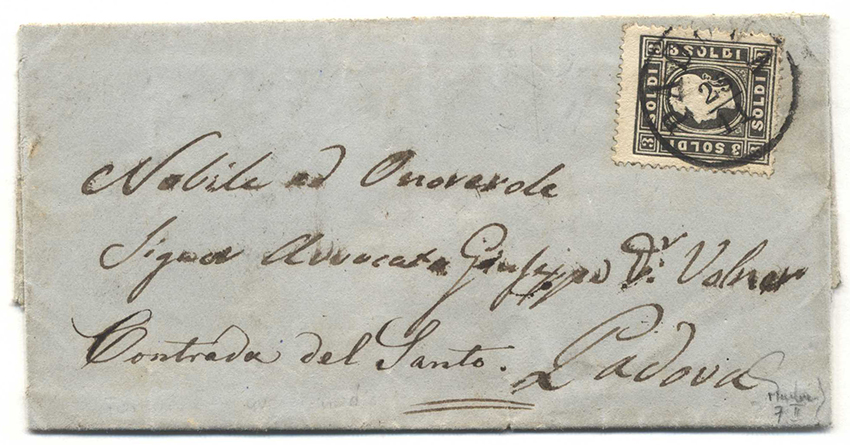 3 SOLDI
SOLDI
SOLDI
3 SOLDI
Nobile ed Onorevole
Signor Avvocato Giuseppe Dr. Valner
Contrada del Santo.
Padova
7 II